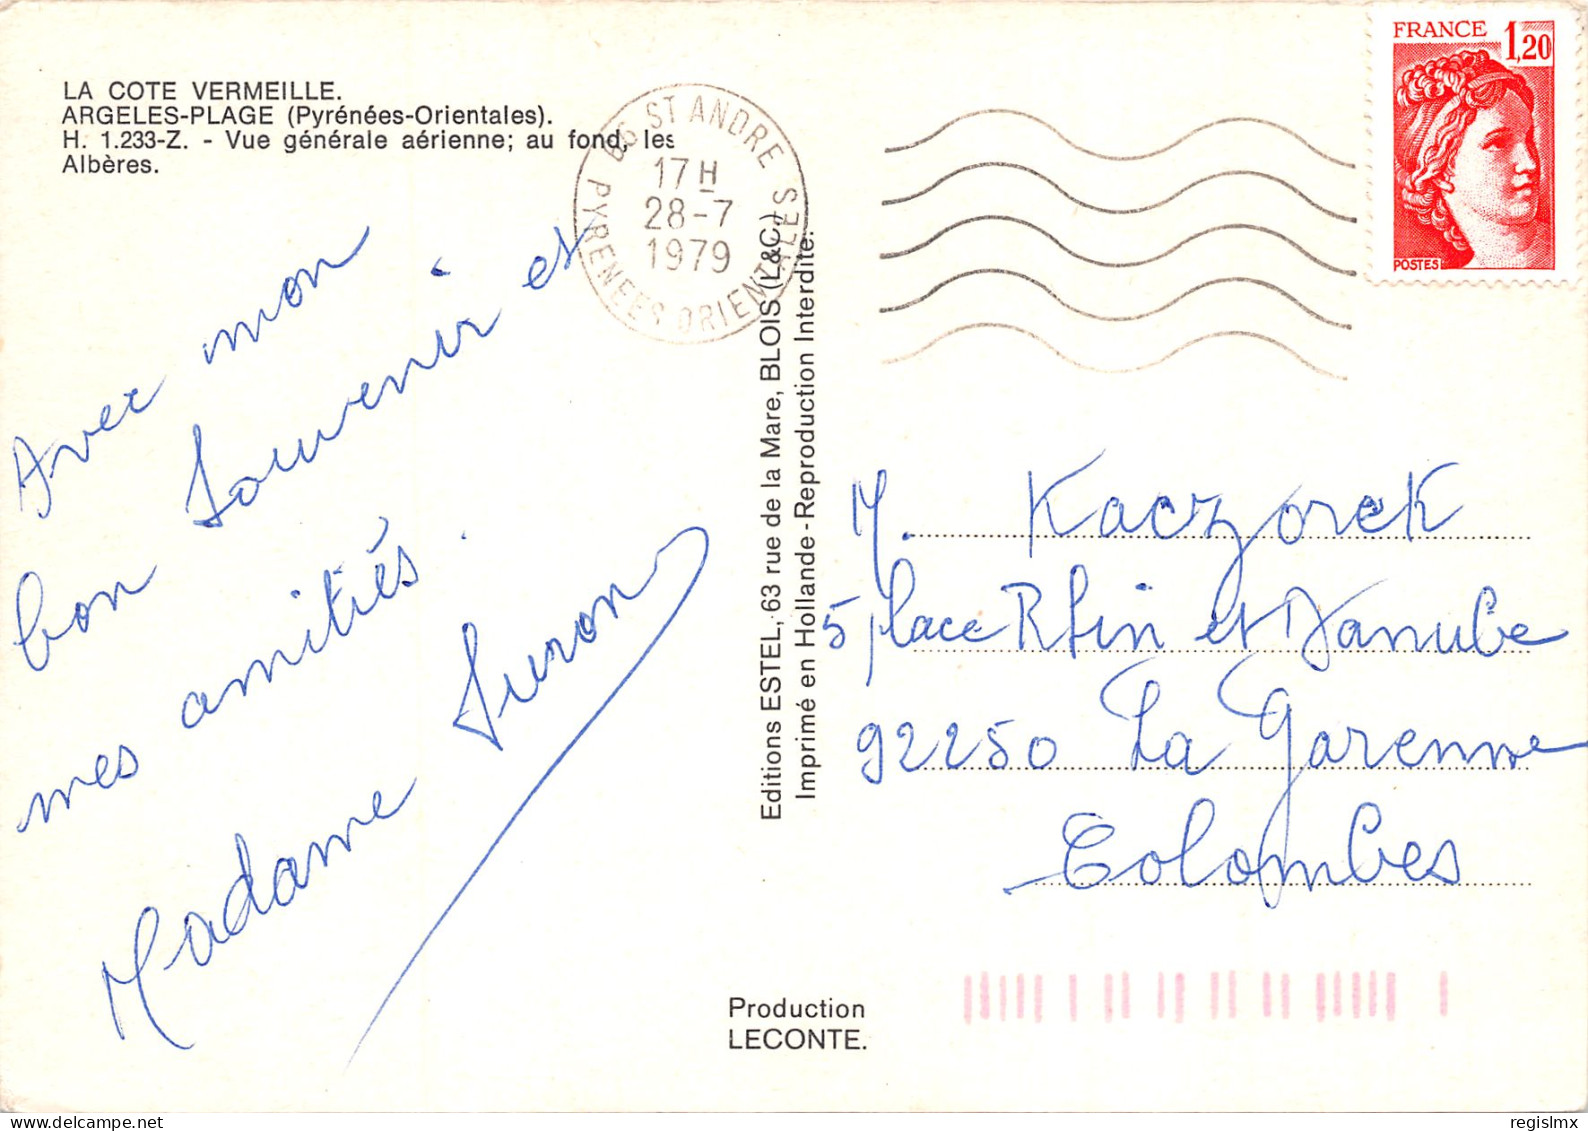 LA COTE VERMEILLE.
ARGELES-PLAGE (Pyrénées-Orientales).
H. 1.233-Z. - Vue générale aérienne; au fond, les
Albères.
66 ST ANDRE
17 H
28-7
1979
PYRENEES ORIENTALES
FRANCE 1,20
POSTES
Avec mon
bon Souvenir et
mes amitiés.
Madame
Editions ESTEL, 63 rue de la Mare, BLOIS (L&C.)
Imprimé en Hollande-Reproduction Interdite.
M. Kaczorek
5 place Rhin et Danube
92250 La Garenne
Colombes
Production
LECONTE.
regislmx